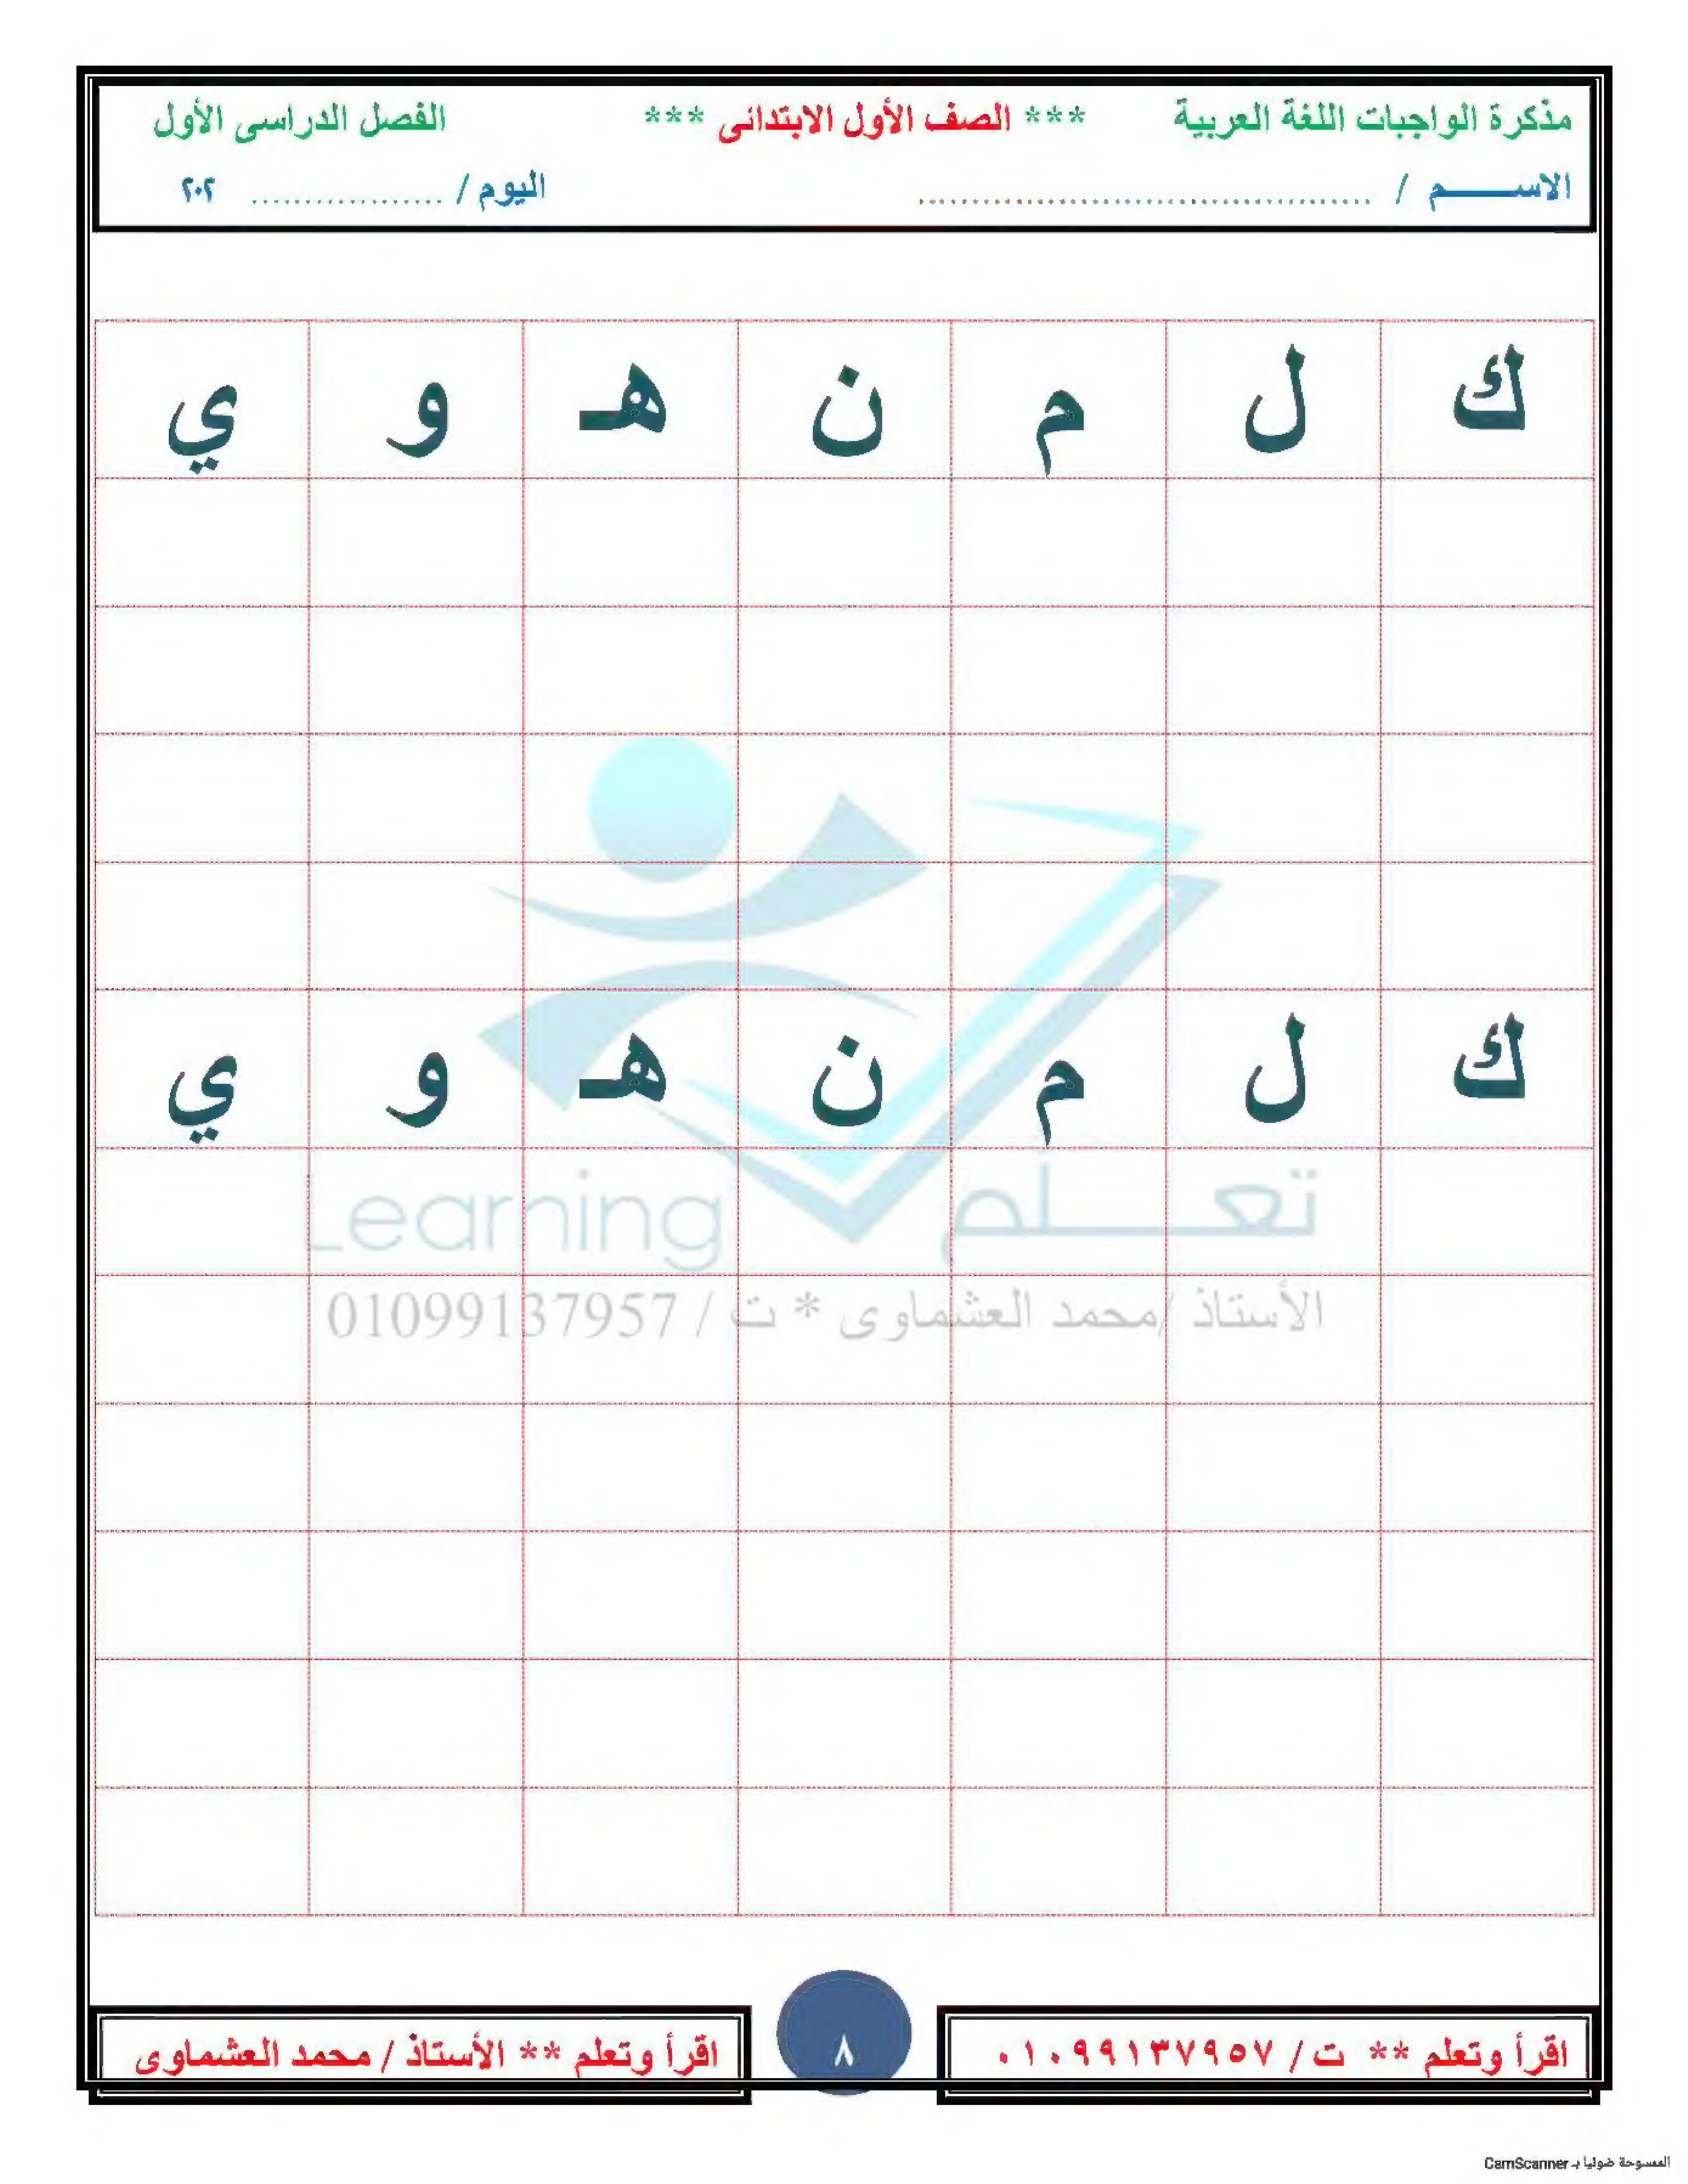 مذكرة الواجبات اللغة العربية *** الصف الأول الابتدائى *** الفصل الدراسى الأول
الاســـــم / .......................................... اليوم / .................. ٢٠٢
ك ل م ن هـ و ي
ك ل م ن هـ و ي
تعـــلم Learning
الأستاذ /محمد العشماوى * ت / 01099137957
اقرأ وتعلم ** ت / ٠١٠٩٩١٣٧٩٥٧
٨
اقرأ وتعلم ** الأستاذ / محمد العشماوى
الممسوحة ضوئيا بـ CamScanner